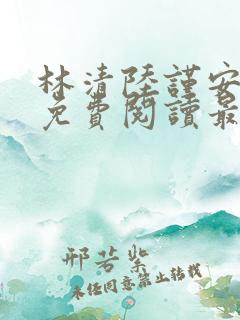 林清陸謹安
免費閱讀最
邢若紫
未經同意禁止轉載